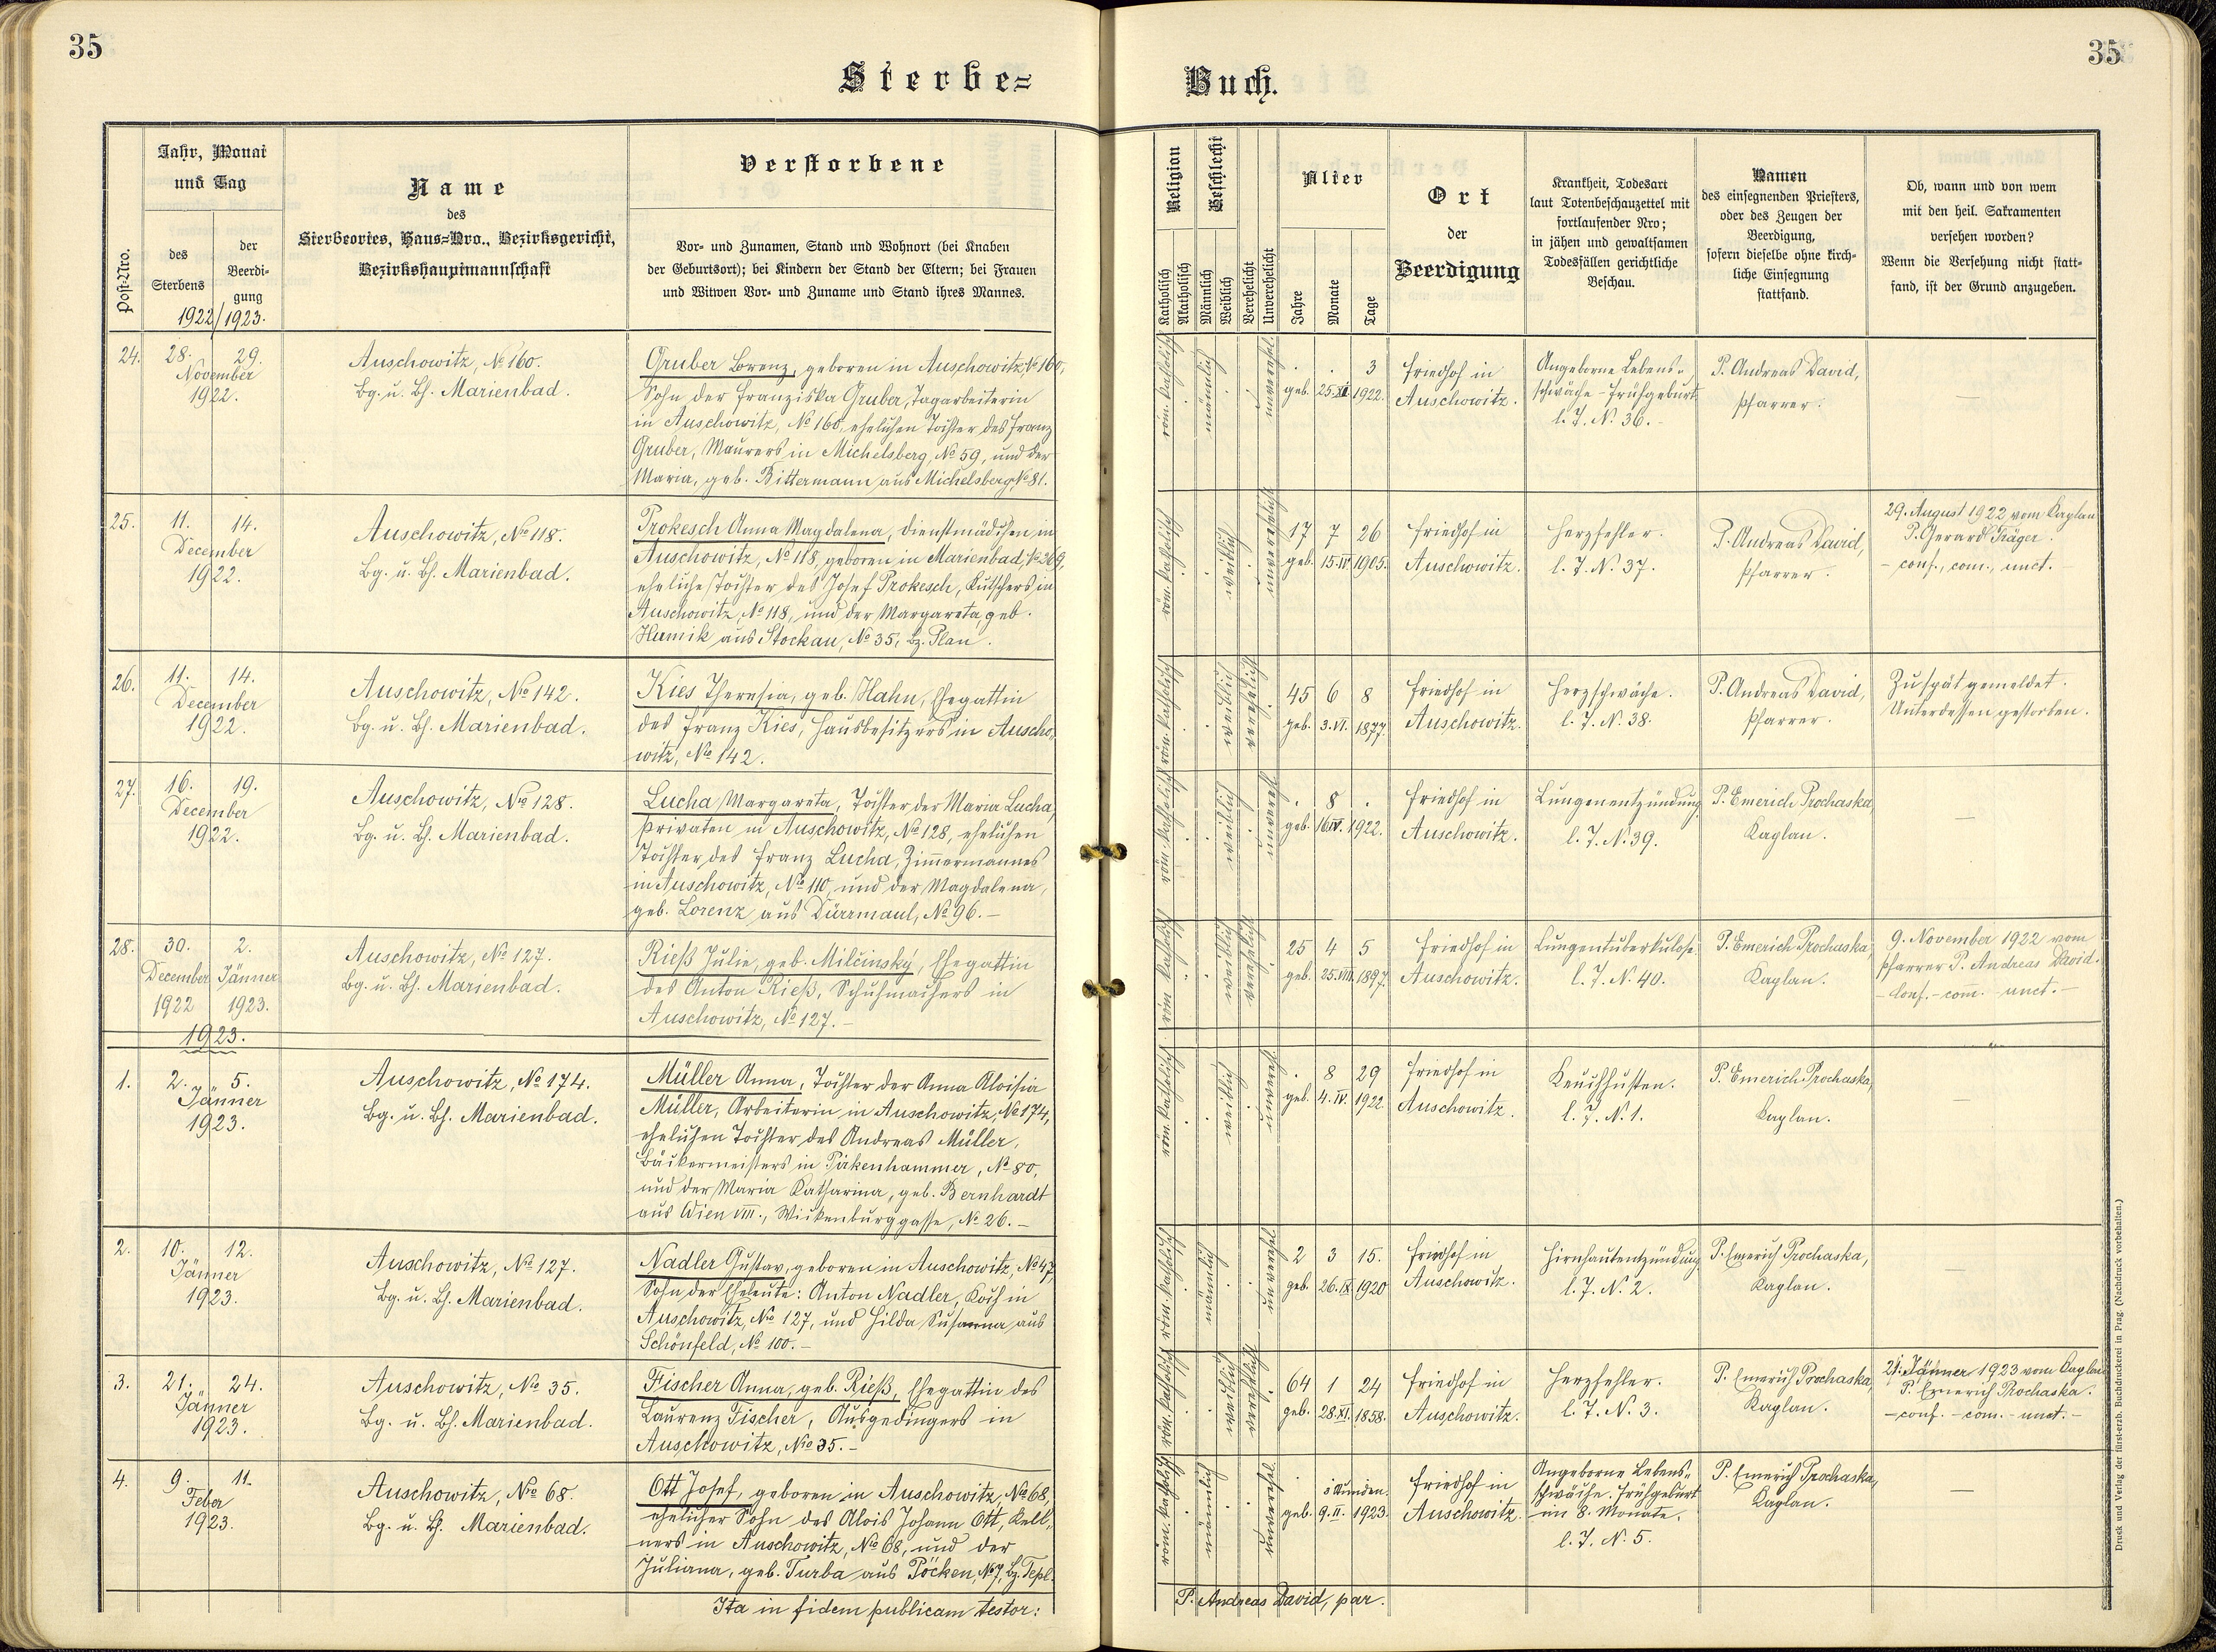 35
35
Sterbe=
Buch.
Post-Nro.
Jahr, Monat
und Tag
des
Sterbens
der
Beerdi-
gung
1922/1923.
Name
des
Sterbeortes, Haus=Nro., Bezirksgericht,
Bezirkshauptmannschaft
Verstorbene
Vor- und Zunamen, Stand und Wohnort (bei Knaben
der Geburtsort); bei Kindern der Stand der Eltern; bei Frauen
und Witwen Vor- und Zuname und Stand ihres Mannes.
Religion
Katholisch
Akatholisch
Geschlecht
Männlich
Weiblich
Verehelicht
Unverehelicht
Alter
Jahre
Monate
Tage
Ort
der
Beerdigung
Krankheit, Todesart
laut Totenbeschauzettel mit
fortlaufender Nro;
in jähen und gewaltsamen
Todesfällen gerichtliche
Beschau.
Namen
des einsegnenden Priesters,
oder des Zeugen der
Beerdigung,
sofern dieselbe ohne kirch-
liche Einsegnung
stattfand.
Ob, wann und von wem
mit den heil. Sakramenten
versehen worden?
Wenn die Versehung nicht statt-
fand, ist der Grund anzugeben.
24. 28. 29.
November
1922.
Auschowitz, № 160.
Bg. u. Bh. Marienbad.
Gruber Lorenz, geboren in Auschowitz, № 160,
Sohn der Franziska Gruber, Tagarbeiterin
in Auschowitz, № 160, ehelichen Tochter des Franz
Gruber, Maurers in Michelsberg, № 59, und der
Maria, geb. Bittermann aus Michelsberg, № 81.
röm. katholisch
männlich
unverehel.
. . 3
geb. 25. XI. 1922.
Friedhof in
Auschowitz.
Angeborne Lebens-
schwäche - Frühgeburt
l. J. N. 36.
P. Andreas David,
Pfarrer.
—
25. 11. 14.
December
1922.
Auschowitz, № 118.
Bg. u. Bh. Marienbad.
Prokesch Anna Magdalena, Dienstmädchen in
Auschowitz, № 118, geboren in Marienbad, № 269,
eheliche Tochter des Josef Prokesch, Kutschers in
Auschowitz, № 118, und der Margareta, geb.
aus Stockau, № 35, Bz. Plan.
röm. katholisch
weiblich
unverehelicht
17 7 26
geb. 15. IV. 1905.
Friedhof in
Auschowitz.
Herzfehler.
l. J. N. 37.
P. Andreas David,
Pfarrer.
29. August 1922 vom Kaplan
P. Gerard Träger.
- conf., com., unct. -
26. 11. 14.
December
1922.
Auschowitz, № 142.
Bg. u. Bh. Marienbad.
Kies Theresia, geb. Hahn, Ehegattin
des Franz Kies, Hausbesitzers in Auscho-
witz, № 142.
röm. katholisch
weiblich
verehelicht
45 6 8
geb. 3. VI. 1877.
Friedhof in
Auschowitz.
Herzschwäche.
l. J. N. 38.
P. Andreas David,
Pfarrer.
Zu spät gemeldet.
Unterdessen gestorben.
27. 16. 19.
December
1922.
Auschowitz, № 128.
Bg. u. Bh. Marienbad.
Lucha Margareta, Tochter der Maria Lucha,
Privaten in Auschowitz, № 128, ehelichen
Tochter des Franz Lucha, Zimmermannes
in Auschowitz, № 110, und der Magdalena,
geb. Lorenz aus Dürrmaul, № 96. –
röm. katholisch
weiblich
unverehel.
. 8 .
geb. 16. IV. 1922.
Friedhof in
Auschowitz.
Lungenentzündung
l. J. N. 39.
P. Emerich Prochaska,
Kaplan.
—
28. 30. 2.
December Jänner
1922 1923.
Auschowitz, № 127.
Bg. u. Bh. Marienbad.
Rieß Julie, geb. Milčinský, Ehegattin
des Anton Rieß, Schuhmachers in
Auschowitz, № 127. –
röm. katholisch
weiblich
verehelicht
25 4 5
geb. 25. VIII. 1897.
Friedhof in
Auschowitz.
Lungentuberkulose.
l. J. N. 40.
P. Emerich Prochaska,
Kaplan.
9. November 1922 vom
Pfarrer P. Andreas David.
- Conf. - com. - unct. -
1923.
1. 2. 5.
Jänner
1923.
Auschowitz, № 174.
Bg. u. Bh. Marienbad.
Müller Anna, Tochter der Anna Aloisia
Müller, Arbeiterin in Auschowitz, № 174,
ehelichen Tochter des Andreas Müller,
Bäckermeisters in Pirkenhammer, № 80,
und der Maria Katharina, geb. Bernhardt
aus Wien VIII., Wickenburggasse, № 26. –
röm. katholisch
weiblich
unverehel.
. 8 29
geb. 4. IV. 1922.
Friedhof in
Auschowitz.
Keuchhusten.
l. J. N. 1.
P. Emerich Prochaska,
Kaplan.
—
2. 10. 12.
Jänner
1923.
Auschowitz, № 127.
Bg. u. Bh. Marienbad.
Nadler Gustav, geboren in Auschowitz, № 47,
Sohn der Eheleute: Anton Nadler, Koch in
Auschowitz, № 127, und Hilda Susanna aus
Schönfeld, № 100. –
röm. katholisch
männlich
unverehel.
2 3 15.
geb. 26. IX. 1920
Friedhof in
Auschowitz.
Hirnhautentzündung
l. J. N. 2.
P. Emerich Prochaska,
Kaplan.
—
3. 21. 24.
Jänner
1923.
Auschowitz, № 35.
Bg. u. Bh. Marienbad.
Fischer Anna, geb. Rieß, Ehegattin des
Laurenz Fischer, Ausgedingers in
Auschowitz, № 35. –
röm. katholisch
weiblich
verehelicht
64 1 24
geb. 28. XI. 1858.
Friedhof in
Auschowitz.
Herzfehler.
l. J. N. 3.
P. Emerich Prochaska,
Kaplan.
21. Jänner 1923 vom Kaplan
P. Emerich Prochaska.
- conf. - com. - unct. -
4. 9. 11.
Feber
1923.
Auschowitz, № 68.
Bg. u. Bh. Marienbad.
Ott Josef, geboren in Auschowitz, № 68,
ehelicher Sohn des Alois Johann Ott, Kell-
ners in Auschowitz, № 68, und der
Juliana, geb. Turba aus Pöcken, № 7, Bz. Tepl.
röm. katholisch
männlich
unverehel.
Stunden.
geb. 9. II. 1923.
Friedhof in
Auschowitz.
Angeborne Lebens-
schwäche. Frühgeburt
im 8. Monate.
l. J. N. 5.
P. Emerich Prochaska,
Kaplan.
—
Ita in fidem publicam testor:
P. Andreas David, par.
Druck und Verlag der fürst-erzb. Buchdruckerei in Prag. (Nachdruck vorbehalten.)